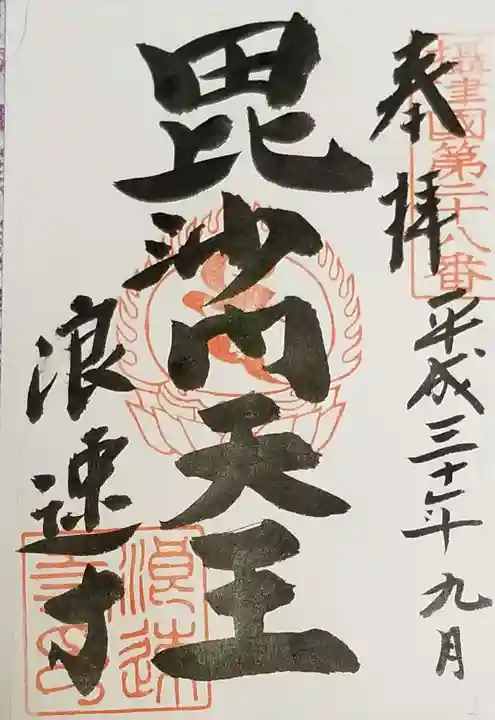 攝津國第二十八番
奉拝
平成三十年九月
毘沙門天王
浪速寺
浪速寺印